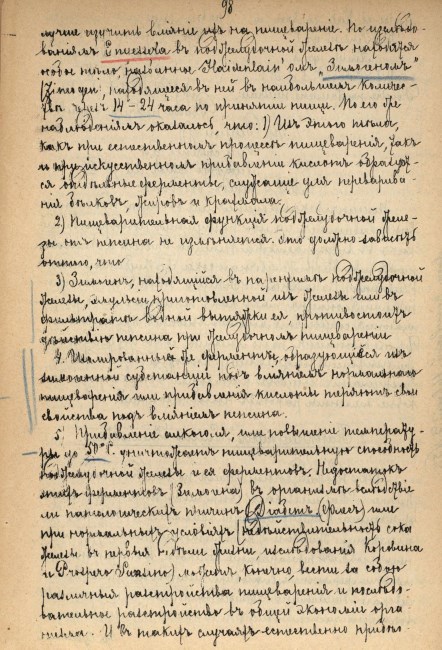 98
лучше изучить вліяніе ихъ на пищевареніе. По изслѣдо-
ваніямъ въ поджелудочной железѣ находятся
особое тѣло, названное Haidenhain'омъ „Зимогеномъ"
(Zimogen), находящееся въ ней въ наибольшемъ количес-
твѣ 14–24 часа по принятіи пищи. По его же
наблюденіямъ оказалось, что: 1) Изъ этого тѣла,
какъ при естественномъ процессѣ пищеваренія, такъ
и при искусственномъ прибавленіе кислотъ образую-
ся отдѣльные ферменты, служащіе для перевариванія
бѣлковъ, жировъ и крахмала.
2) Пищеварительная функція поджелудочной желе-
зы отъ пепсина не измѣняется. Это должно зависѣть
оттого, что
3) Зимогенъ, находящійся въ паренхимѣ поджелудочной
железы, эмульсіи, приготовленной изъ железы или въ
фильтратѣ водной вытяжки ея, противостоитъ
дѣйствію пепсина при желудочномъ пищевареніи
4. же ферменты, образующіеся изъ
субстанціи подъ вліяніемъ нормальнаго
пищеваренія или прибавленія кислоты теряютъ свои
свойства подъ вліяніемъ пепсина.
5. Прибавленіе алкоголя, или повышеніе температу-
ры до 50° уничтожаетъ пищеварительную способность
поджелудочной железы и ея ферментовъ. Недостатокъ
этихъ ферментовъ (Зимогена) въ организмѣ вслѣдствіе
ли патологическихъ причинъ (Діабетъ, ) или
при нормальныхъ условіяхъ (недѣйствительность сока
железы въ первые жизни, изслѣдованія Коровина
и Prospero ) можетъ, конечно, вести за собою
различныя разстройства пищеваренія и послѣдо-
вательное разстройство въ общей экономіи орга-
низма. И въ такихъ случаяхъ естественно